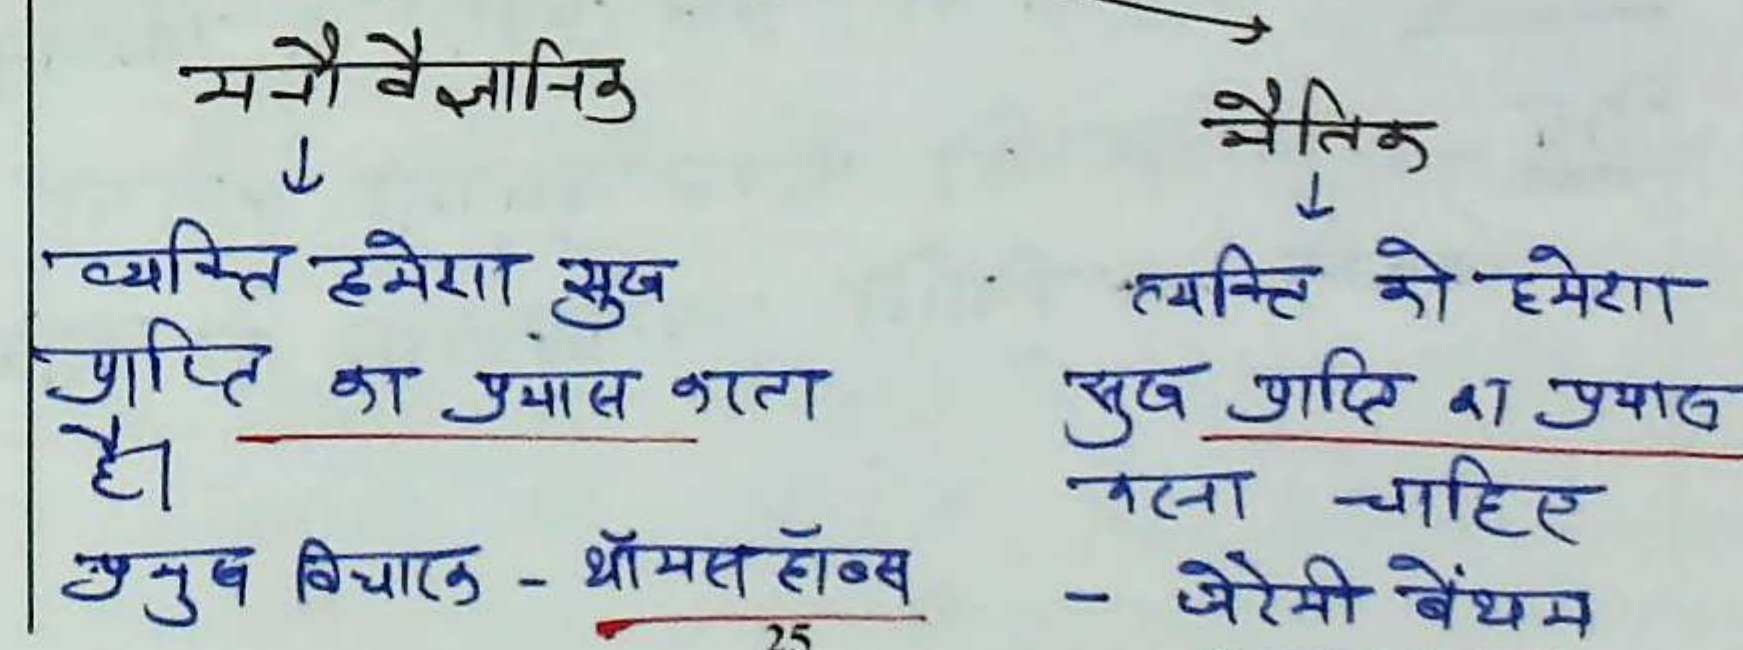 मनोवैज्ञानिक
↓
व्यक्ति हमेशा सुख
प्राप्ति का प्रयास करता
है।
प्रमुख विचारक - थॉमस हॉब्स
नैतिक
↓
व्यक्ति को हमेशा
सुख प्राप्ति का प्रयास
करना चाहिए
- जेरेमी बेंथम
25